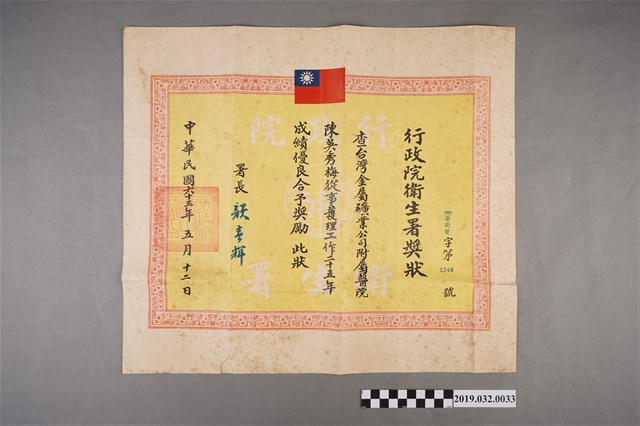 行政院衛生署獎狀
字第1244號
查台灣金屬礦業公司附屬醫院
陳吳秀梅從事護理工作二十五年
成績優良合予獎勵 此狀
署長 顏春輝
中華民國六十三年五月十二日
行政院
衛生署
2019.032.0033